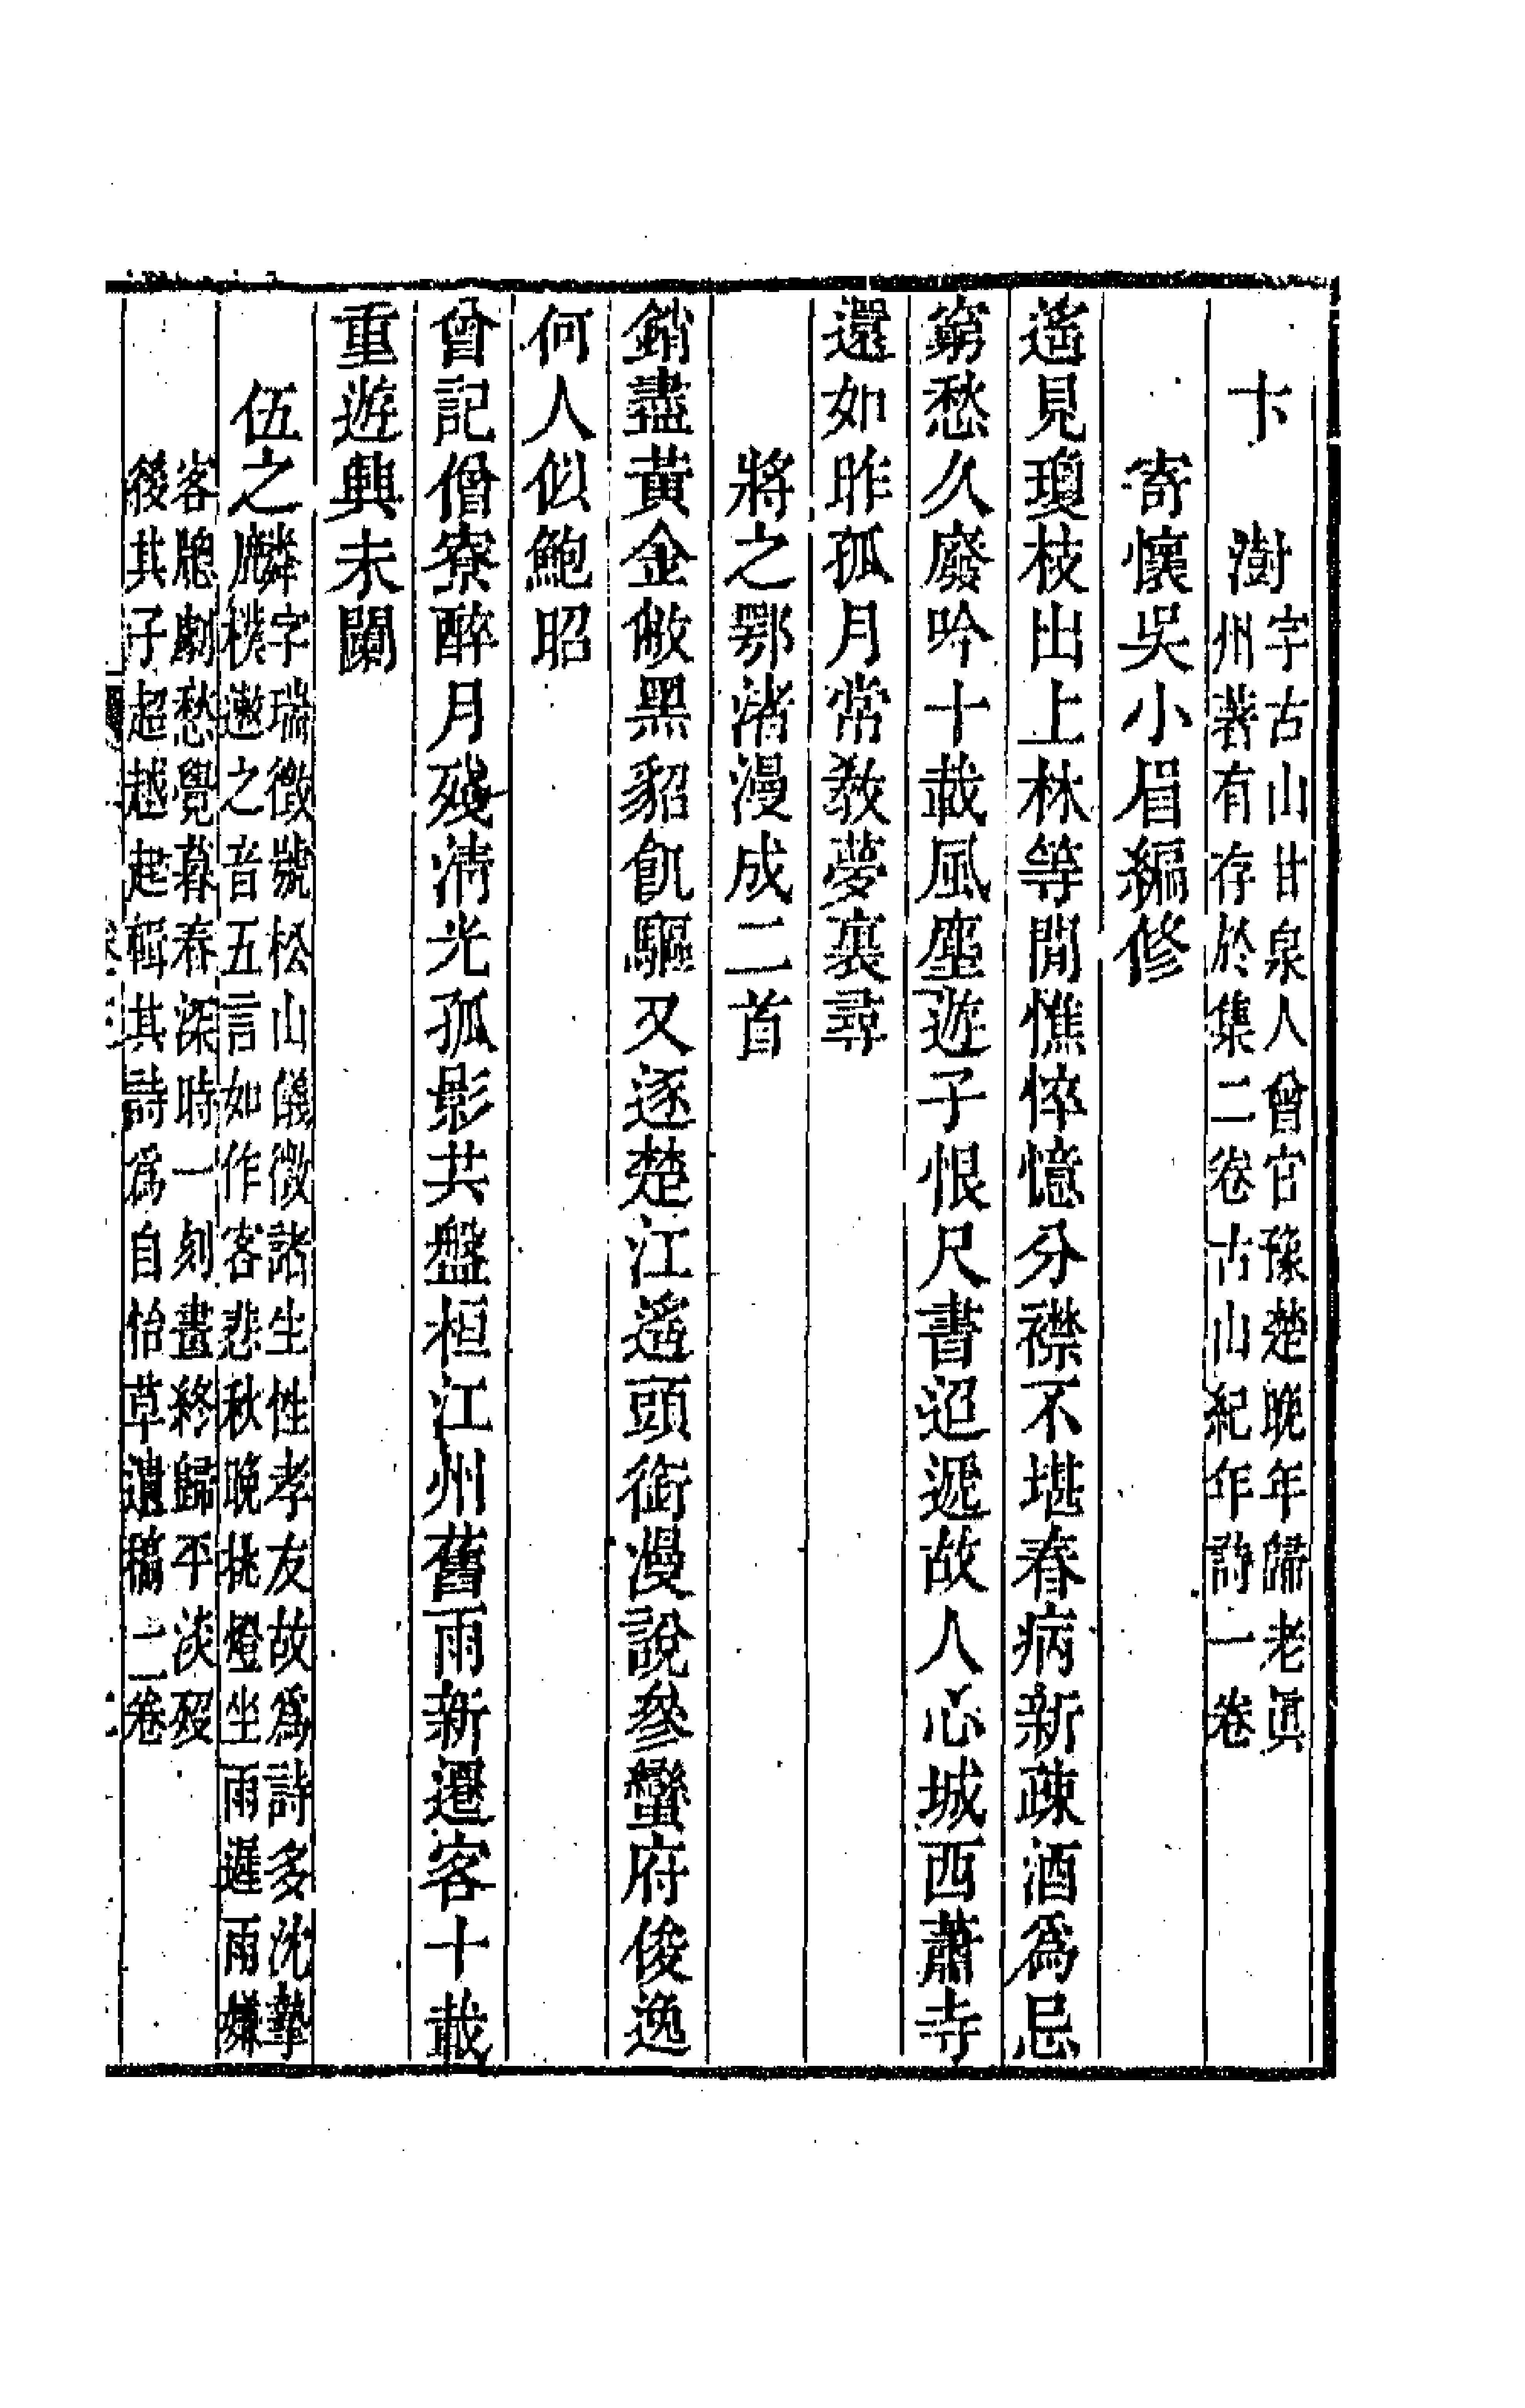 卞　澍字古山甘泉人曾官豫楚晚年歸老眞
州著有存於集二卷古山紀年詩一卷
寄懷吳小眉編修
遙見瓊枝出上林等閒憔悴憶分襟不堪春病新疎酒爲忌
窮愁久廢吟十載風塵遊子恨尺書迢遞故人心城西蕭寺
還如昨孤月常敎夢裏尋
將之鄂渚漫成二首
銷盡黃金敝黑貂飢驅又逐楚江遙頭銜漫說參蠻府俊逸
何人似鮑昭
曾記僧寮醉月殘淸光孤影共盤桓江州舊雨新遷客十載
重遊興未闌
伍之麟字瑞徵號松山儀徵諸生性孝友故爲詩多沈摯
樸遬之音五言如作客悲秋晚挑燈坐雨遲雨嫌
客牕劇愁覺暮春深時一刻畫終歸平淡歿
後其子超越起輯其詩爲自怡草遺稿二卷